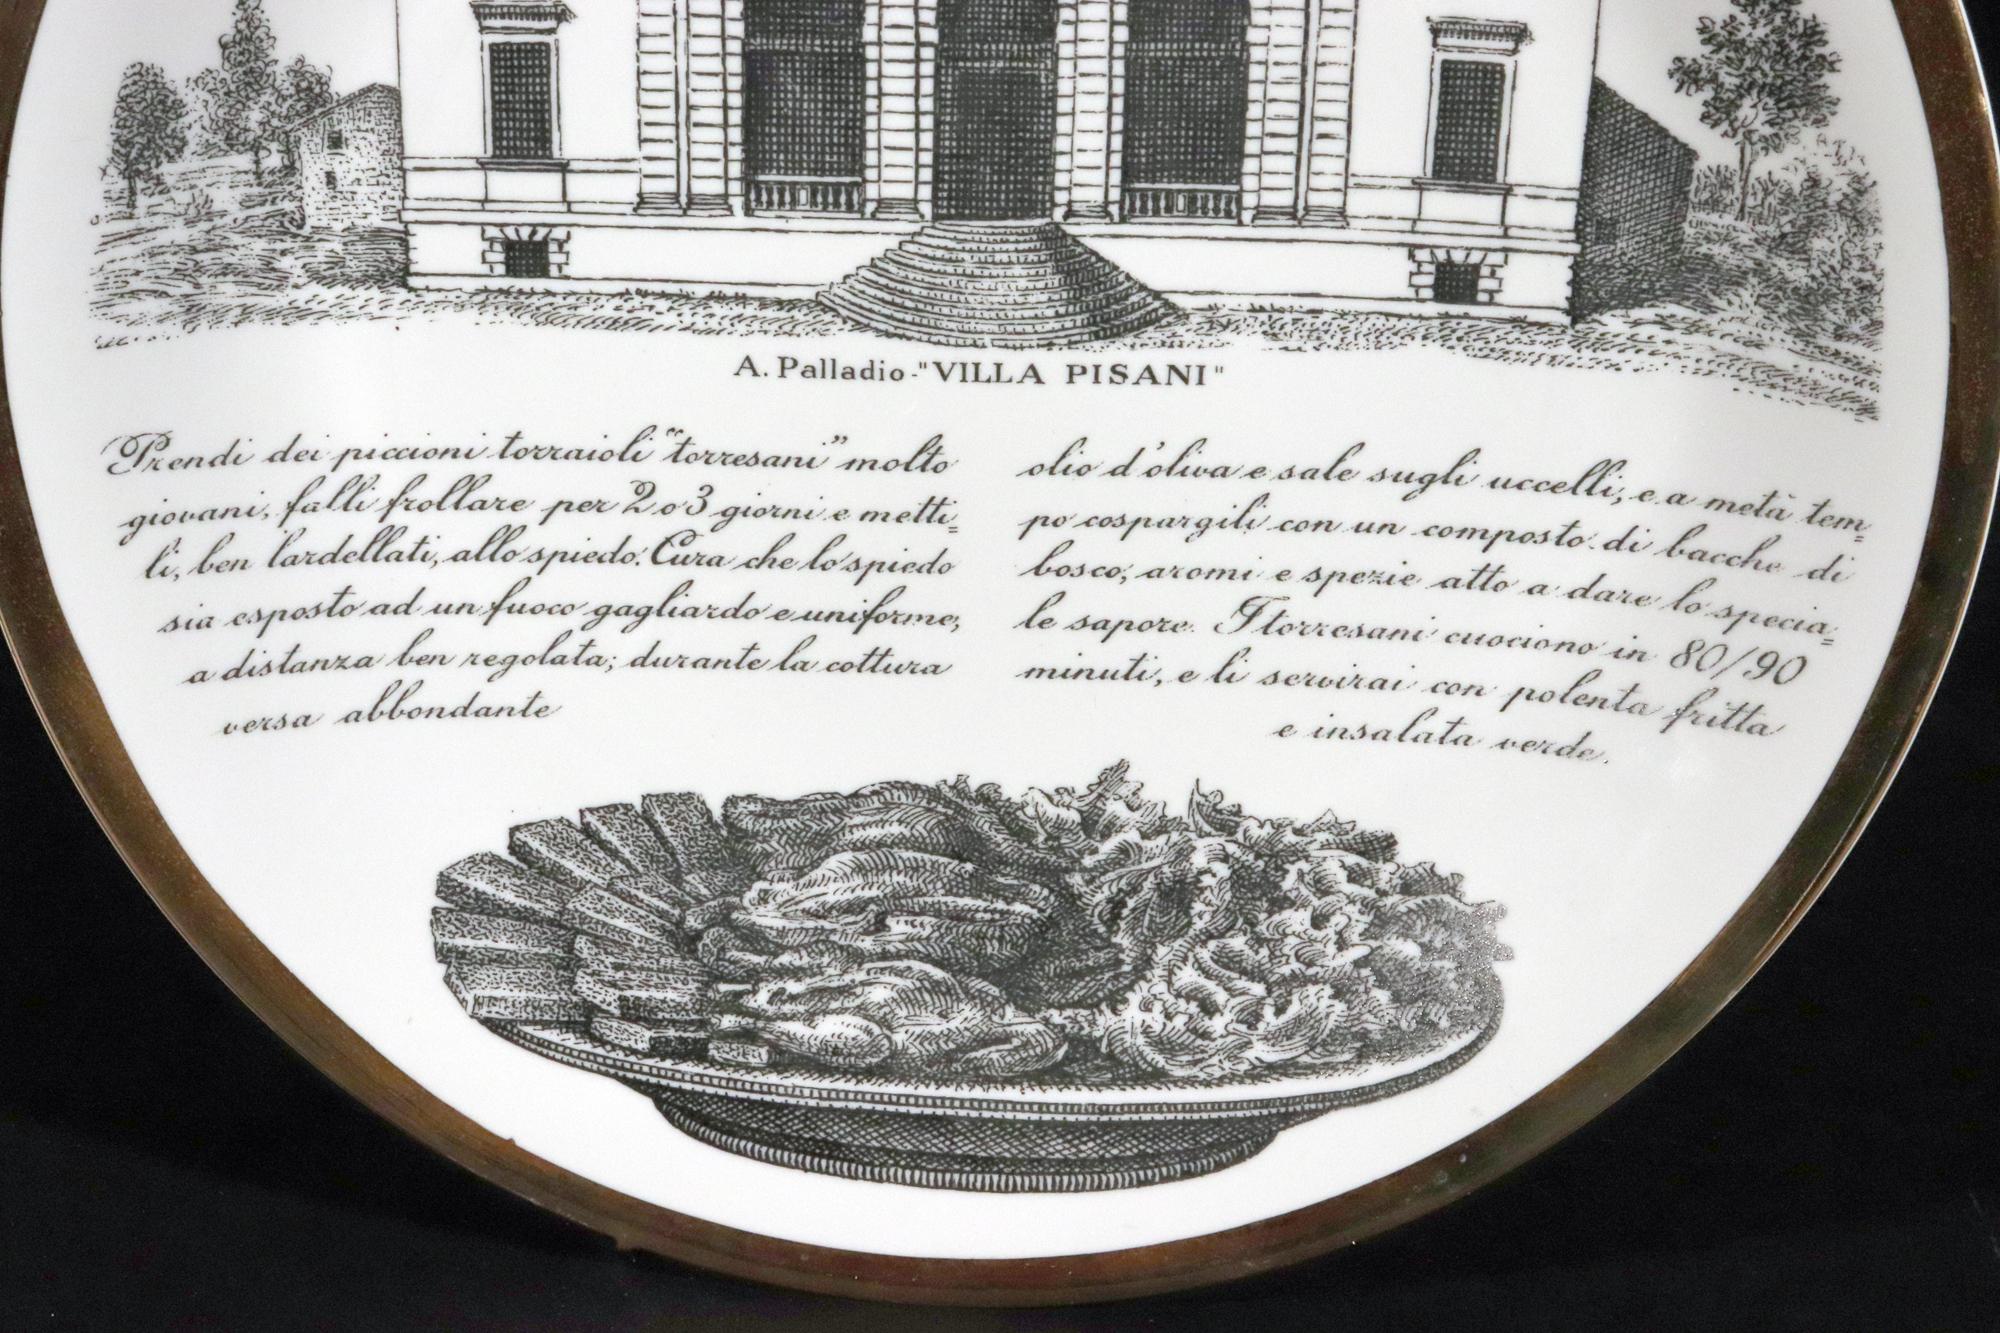 A. Palladio - "VILLA PISANI"
Prendi dei piccioni torraioli "torresani" molto
giovani, falli frollare per 2 o 3 giorni e metti=
li, ben lardellati, allo spiedo. Cura che lo spiedo
sia esposto ad un fuoco gagliardo e uniforme,
a distanza ben regolata; durante la cottura
versa abbondante
olio d'oliva e sale sugli uccelli, e a metà tem=
po cospargili con un composto di bacche di
bosco, aromi e spezie atto a dare lo specia=
le sapore. I torresani cuociono in 80/90
minuti, e li servirai con polenta fritta
e insalata verde.